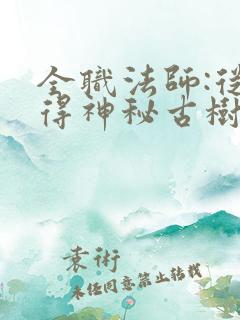 全職法師:從
得神秘古樹
袁術
未經同意禁止轉載